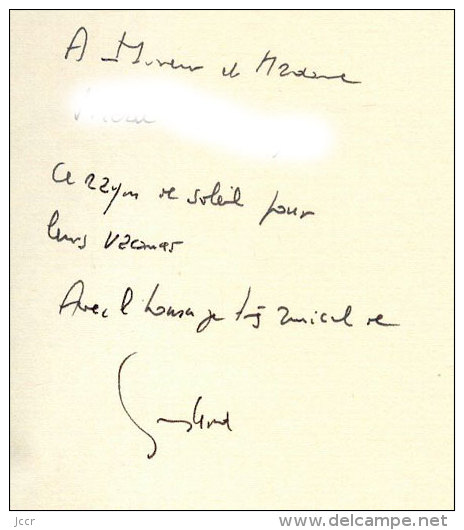 A Monsieur et Madame
Ce rayon de soleil pour
leurs vacances
Avec l'hommage très amical de
jccr
www.delcampe.net